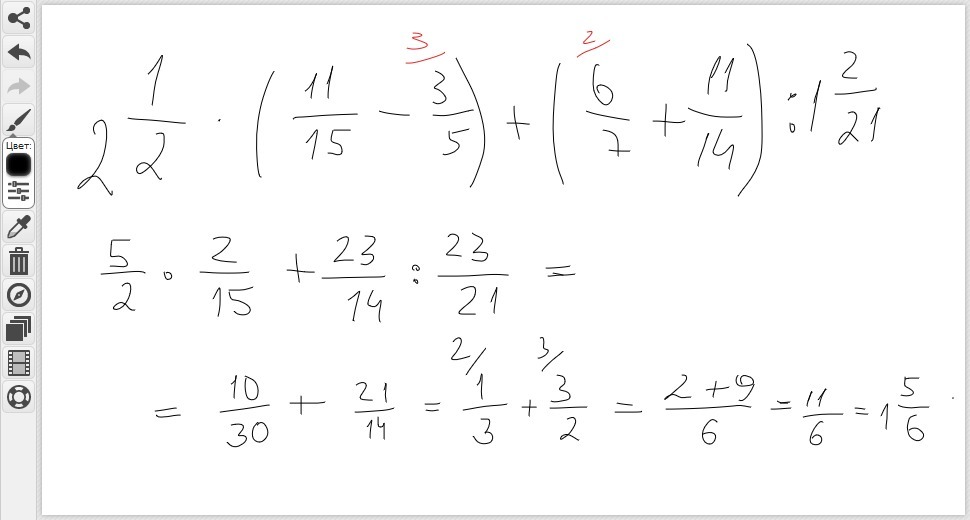 Цвет:
3 2
2 1/2 · (11/15 − 3/5) + (6/7 + 11/14) : 1 2/21
5/2 · 2/15 + 23/14 : 23/21 =
2/ 3/
= 10/30 + 21/14 = 1/3 + 3/2 = 2+9/6 = 11/6 = 1 5/6